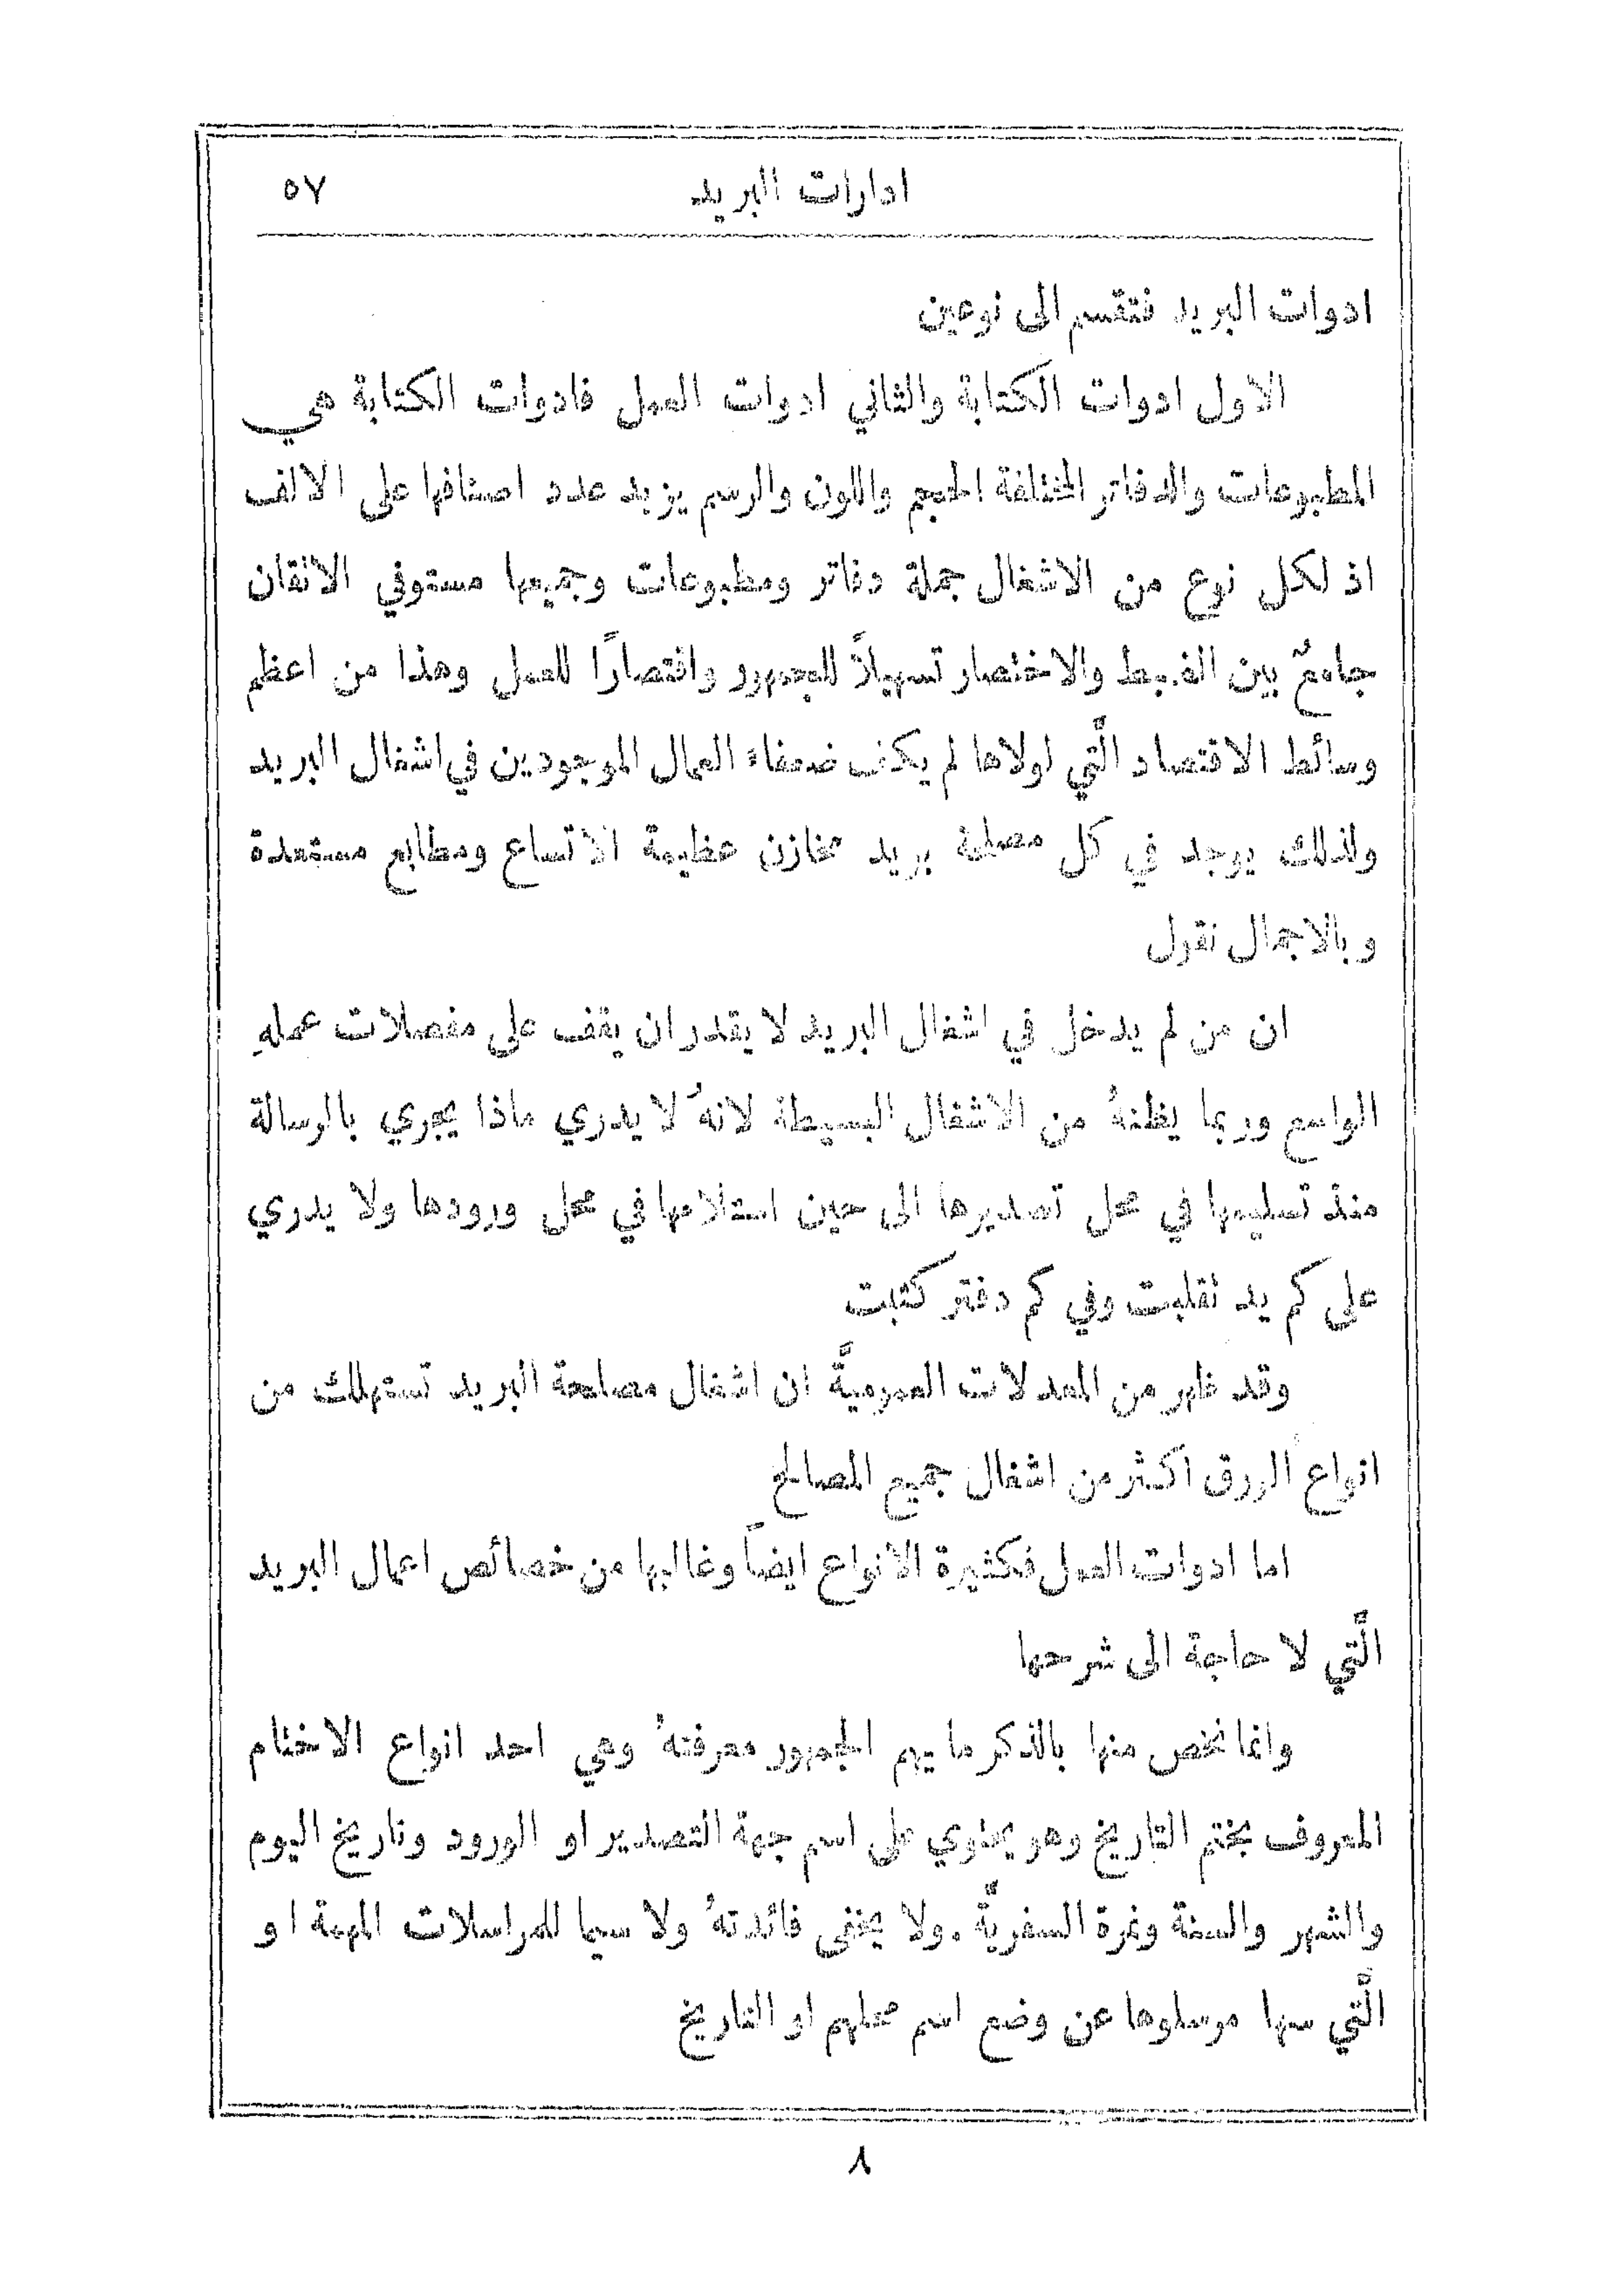 ادارات البريد ٥٧
ادوات البريد فتقسم الى نوعين
الاول ادوات الكتابة والثاني ادوات العمل فادوات الكتابة هي
المطبوعات والدفاتر المختلفة الحجم واللون والرسم يزيد عدد اصنافها على الالف
اذ لكل نوع من الاشغال جملة دفاتر ومطبوعات وجميعها مستوفي الاتقان
جامعٌ بين الضبط والاختصار تسهيلاً للجمهور واقتصارًا للعمل وهذا من اعظم
وسائط الاقتصاد الَّتي لولاها لم يكف ضعفاء العمال الموجودين في اشغال البريد
ولذلك يوجد في كل مصلحة بريد مخازن عظيمة الاتساع ومطابع مستعدة
وبالاجمال نقول
ان من لم يدخل في اشغال البريد لا يقدر ان يقف على مفصلات عملهِ
الواسع وربما يظنهُ من الاشغال البسيطة لانهُ لا يدري ماذا يجري بالرسالة
منذ تسليمها في محل تصديرها الى حين استلامها في محل ورودها ولا يدري
على كم يد تقلبت وفي كم دفتر كتبت
وقد ظهر من المعدلات العموميَّة ان اشغال مصلحة البريد تستهلك من
انواع الورق اكثر من اشغال جميع المصالح
اما ادوات العمل فكثيرة الانواع ايضاً وغالبها من خصائص اعمال البريد
الَّتي لا حاجة الى شرحها
وانما نخص منها بالذكر ما يهم الجمهور معرفتهُ وهي احد انواع الاختام
المعروف بختم التاريخ وهو يحتوي على اسم جهة التصدير او الورود وتاريخ اليوم
والشهر والسنة ونمرة السفريَّة . ولا يخفى فائدتهُ ولا سيما للمراسلات المهمة او
الَّتي سها مرسلوها عن وضع اسم محلهم او التاريخ
٨